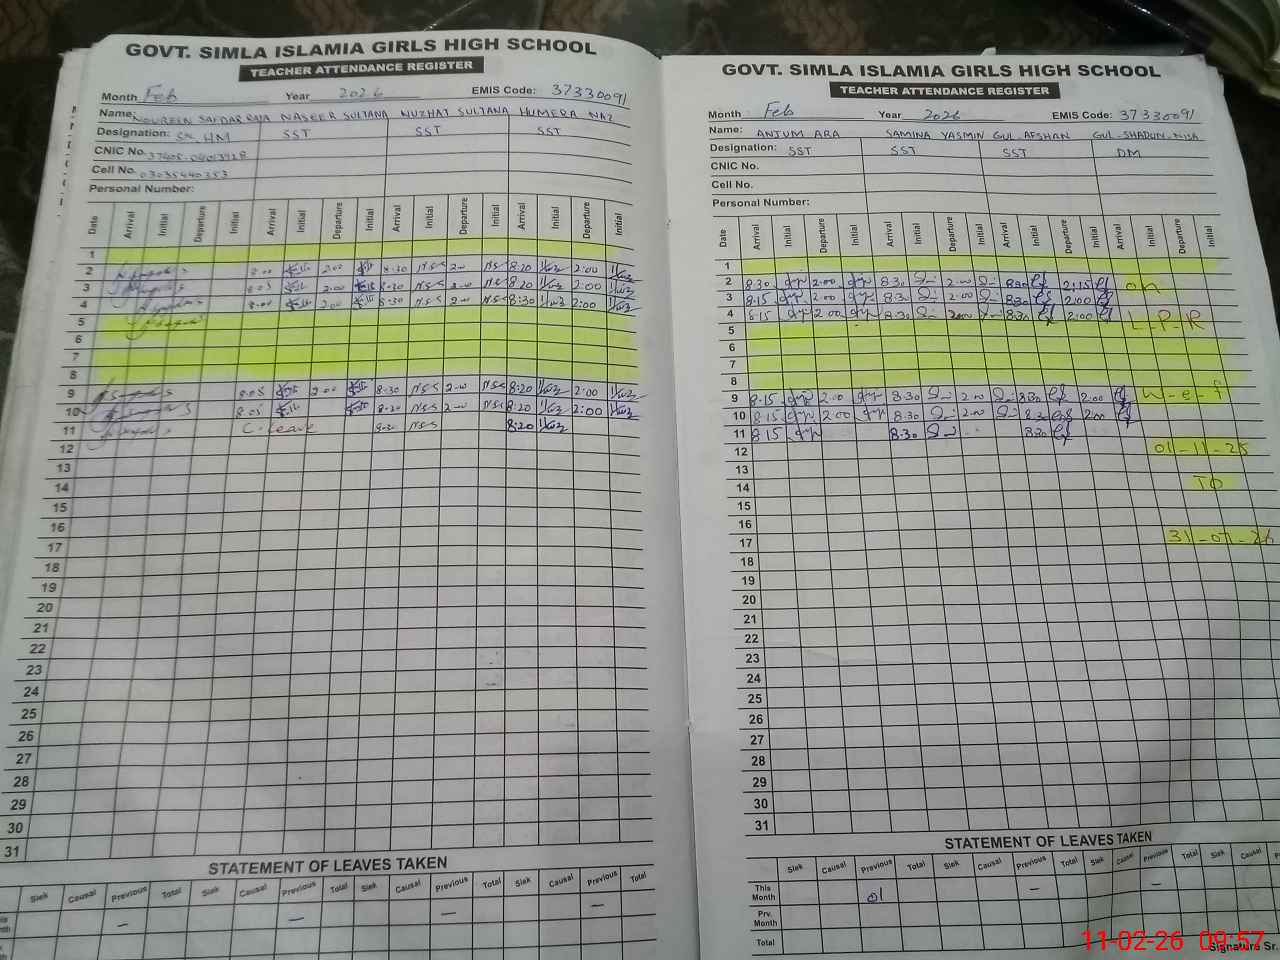 GOVT. SIMLA ISLAMIA GIRLS HIGH SCHOOL
TEACHER ATTENDANCE REGISTER
Month Feb Year 2026 EMIS Code: 37330091
Name: NOUREEN SAFDAR RAJA NASEER SULTANA NUZHAT SULTANA HUMERA NAZ
Designation: HM SST SST SST
CNIC No.
Cell No. 03035440353
Personal Number:
Date Arrival Initial Departure Initial Arrival Initial Departure Initial Arrival Initial Departure Initial Arrival Initial Departure Initial
1
2 8:00 2:00 8:30 NSS 2:00 NSS 8:20 2:00
3 8:05 2:00 8:30 NSS 2:00 NSS 8:20 2:00
4 8:00 2:00 8:30 NSS 2:00 NSS 8:30 2:00
5
6
7
8
9 8:05 2:00 8:30 NSS 2:00 NSS 8:20 2:00
10 8:05 8:20 NSS 2:00 NSS 8:20 2:00
11 C. Leave 8:30 NSS 8:20
12
13
14
15
16
17
18
19
20
21
22
23
24
25
26
27
28
29
30
31
STATEMENT OF LEAVES TAKEN
Siek Causal Previous Total Siek Causal Previous Total Siek Causal Previous Total Siek Causal Previous Total
GOVT. SIMLA ISLAMIA GIRLS HIGH SCHOOL
TEACHER ATTENDANCE REGISTER
Month : Feb Year 2026 EMIS Code: 37330091
Name: ANJUM ARA SAMINA YASMIN GUL AFSHAN GUL-SHADUN-NISA
Designation: SST SST SST DM
CNIC No.
Cell No.
Personal Number:
Date Arrival Initial Departure Initial Arrival Initial Departure Initial Arrival Initial Departure Initial Arrival Initial Departure Initial
1
2 8:30 2:00 8:30 2:00 8:30 2:15 on
3 8:15 2:00 8:30 2:00 8:30 2:00
4 8:15 2:00 8:30 2:00 8:30 2:00 L-P-R
5
6
7
8
9 8:15 2:00 8:30 2:00 8:30 2:00 W-e-f
10 8:15 2:00 8:30 2:00 8:30 2:00
11 8:15 8:30 8:30
12 01-11-25
13
14 TO
15
16
17 31-07-26
18
19
20
21
22
23
24
25
26
27
28
29
30
31
STATEMENT OF LEAVES TAKEN
Siek Causal Previous Total Siek Causal Previous Total Siek Causal Previous Total Siek Causal
This Month 01
Prv. Month
Total
Signature Sr.
11-02-26 09:57